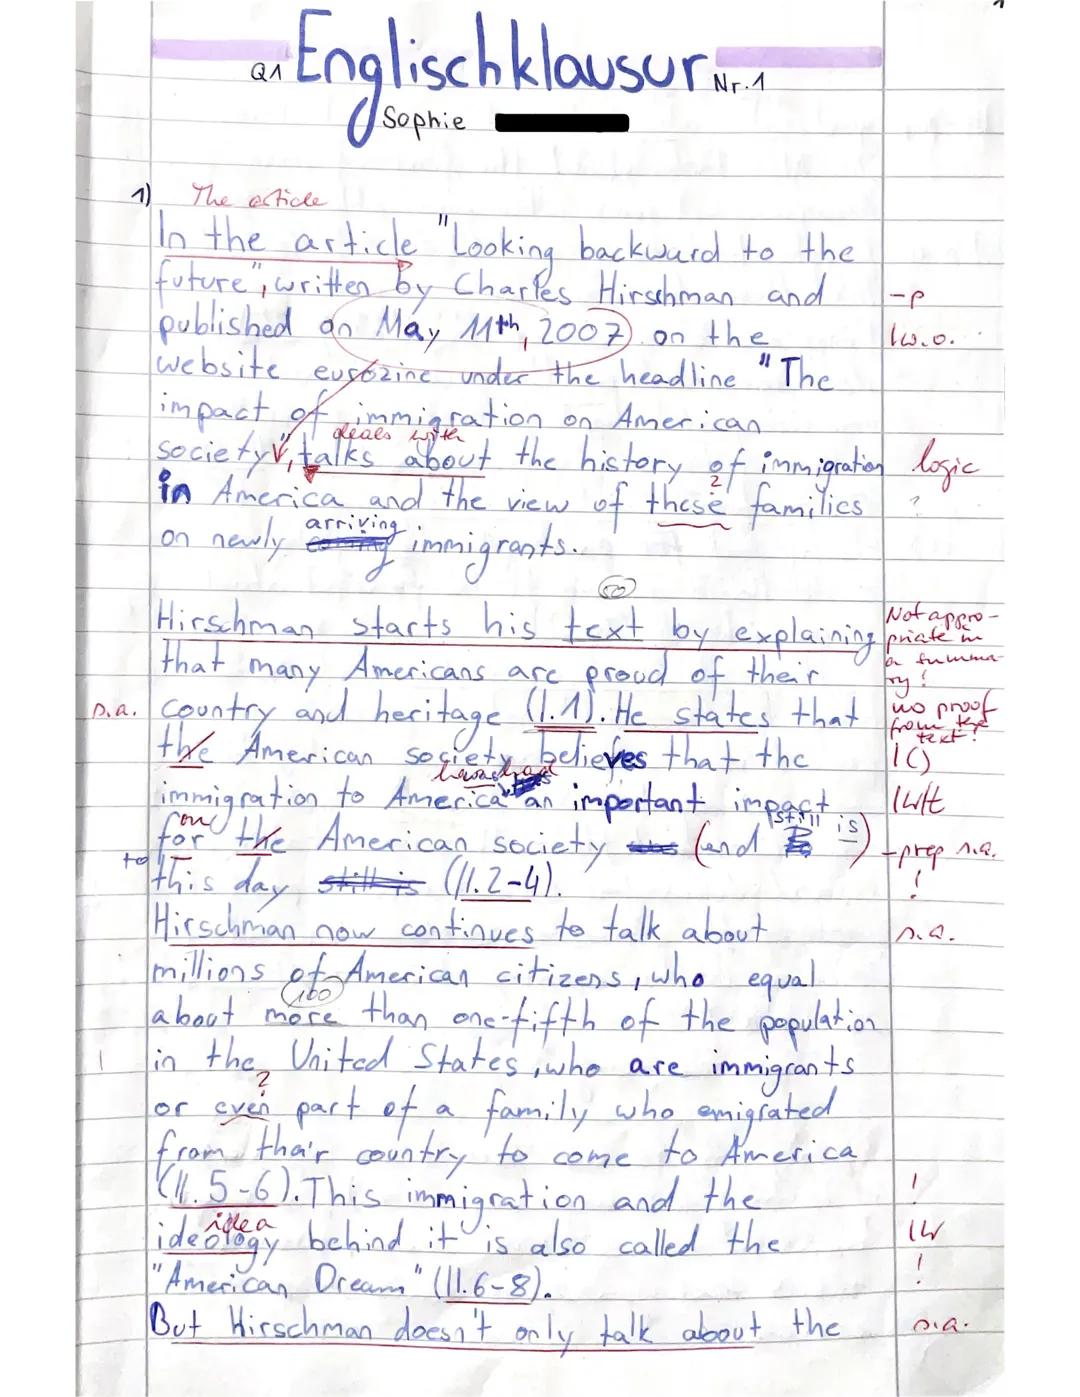 Q1 Englischklausur Nr.1
Sophie
1) The article
In the article "Looking backward to the
future", written by Charles Hirschman and -p
published on May 11th, 2007 on the 1w.o.
website eurozine under the headline "The
impact of immigration on American
deals with
society", talks about the history of immigration logic
2
in America and the view of these families ?
arriving
on newly coming immigrants.
50
Hirschman starts his text by explaining Not appro-
priate in
that many Americans are proud of their a summa-
ry!
s.a. country and heritage (l.1). He states that no proof
from the
text!
the American society believes that the 1()
has had
immigration to America an important impact 1w/t
on still is
for the American society (and ) -prep s.a.
to this day still is (ll.2-4). !
Hirschman now continues to talk about s.a.
millions of American citizens, who equal
100
about more than one-fifth of the population
| in the United States, who are immigrants
?
or even part of a family who emigrated
from their country to come to America
(ll. 5-6). This immigration and the !
idea
ideology behind it is also called the 1w
"American Dream" (ll.6-8). !
But Hirschman doesn't only talk about the s.a.